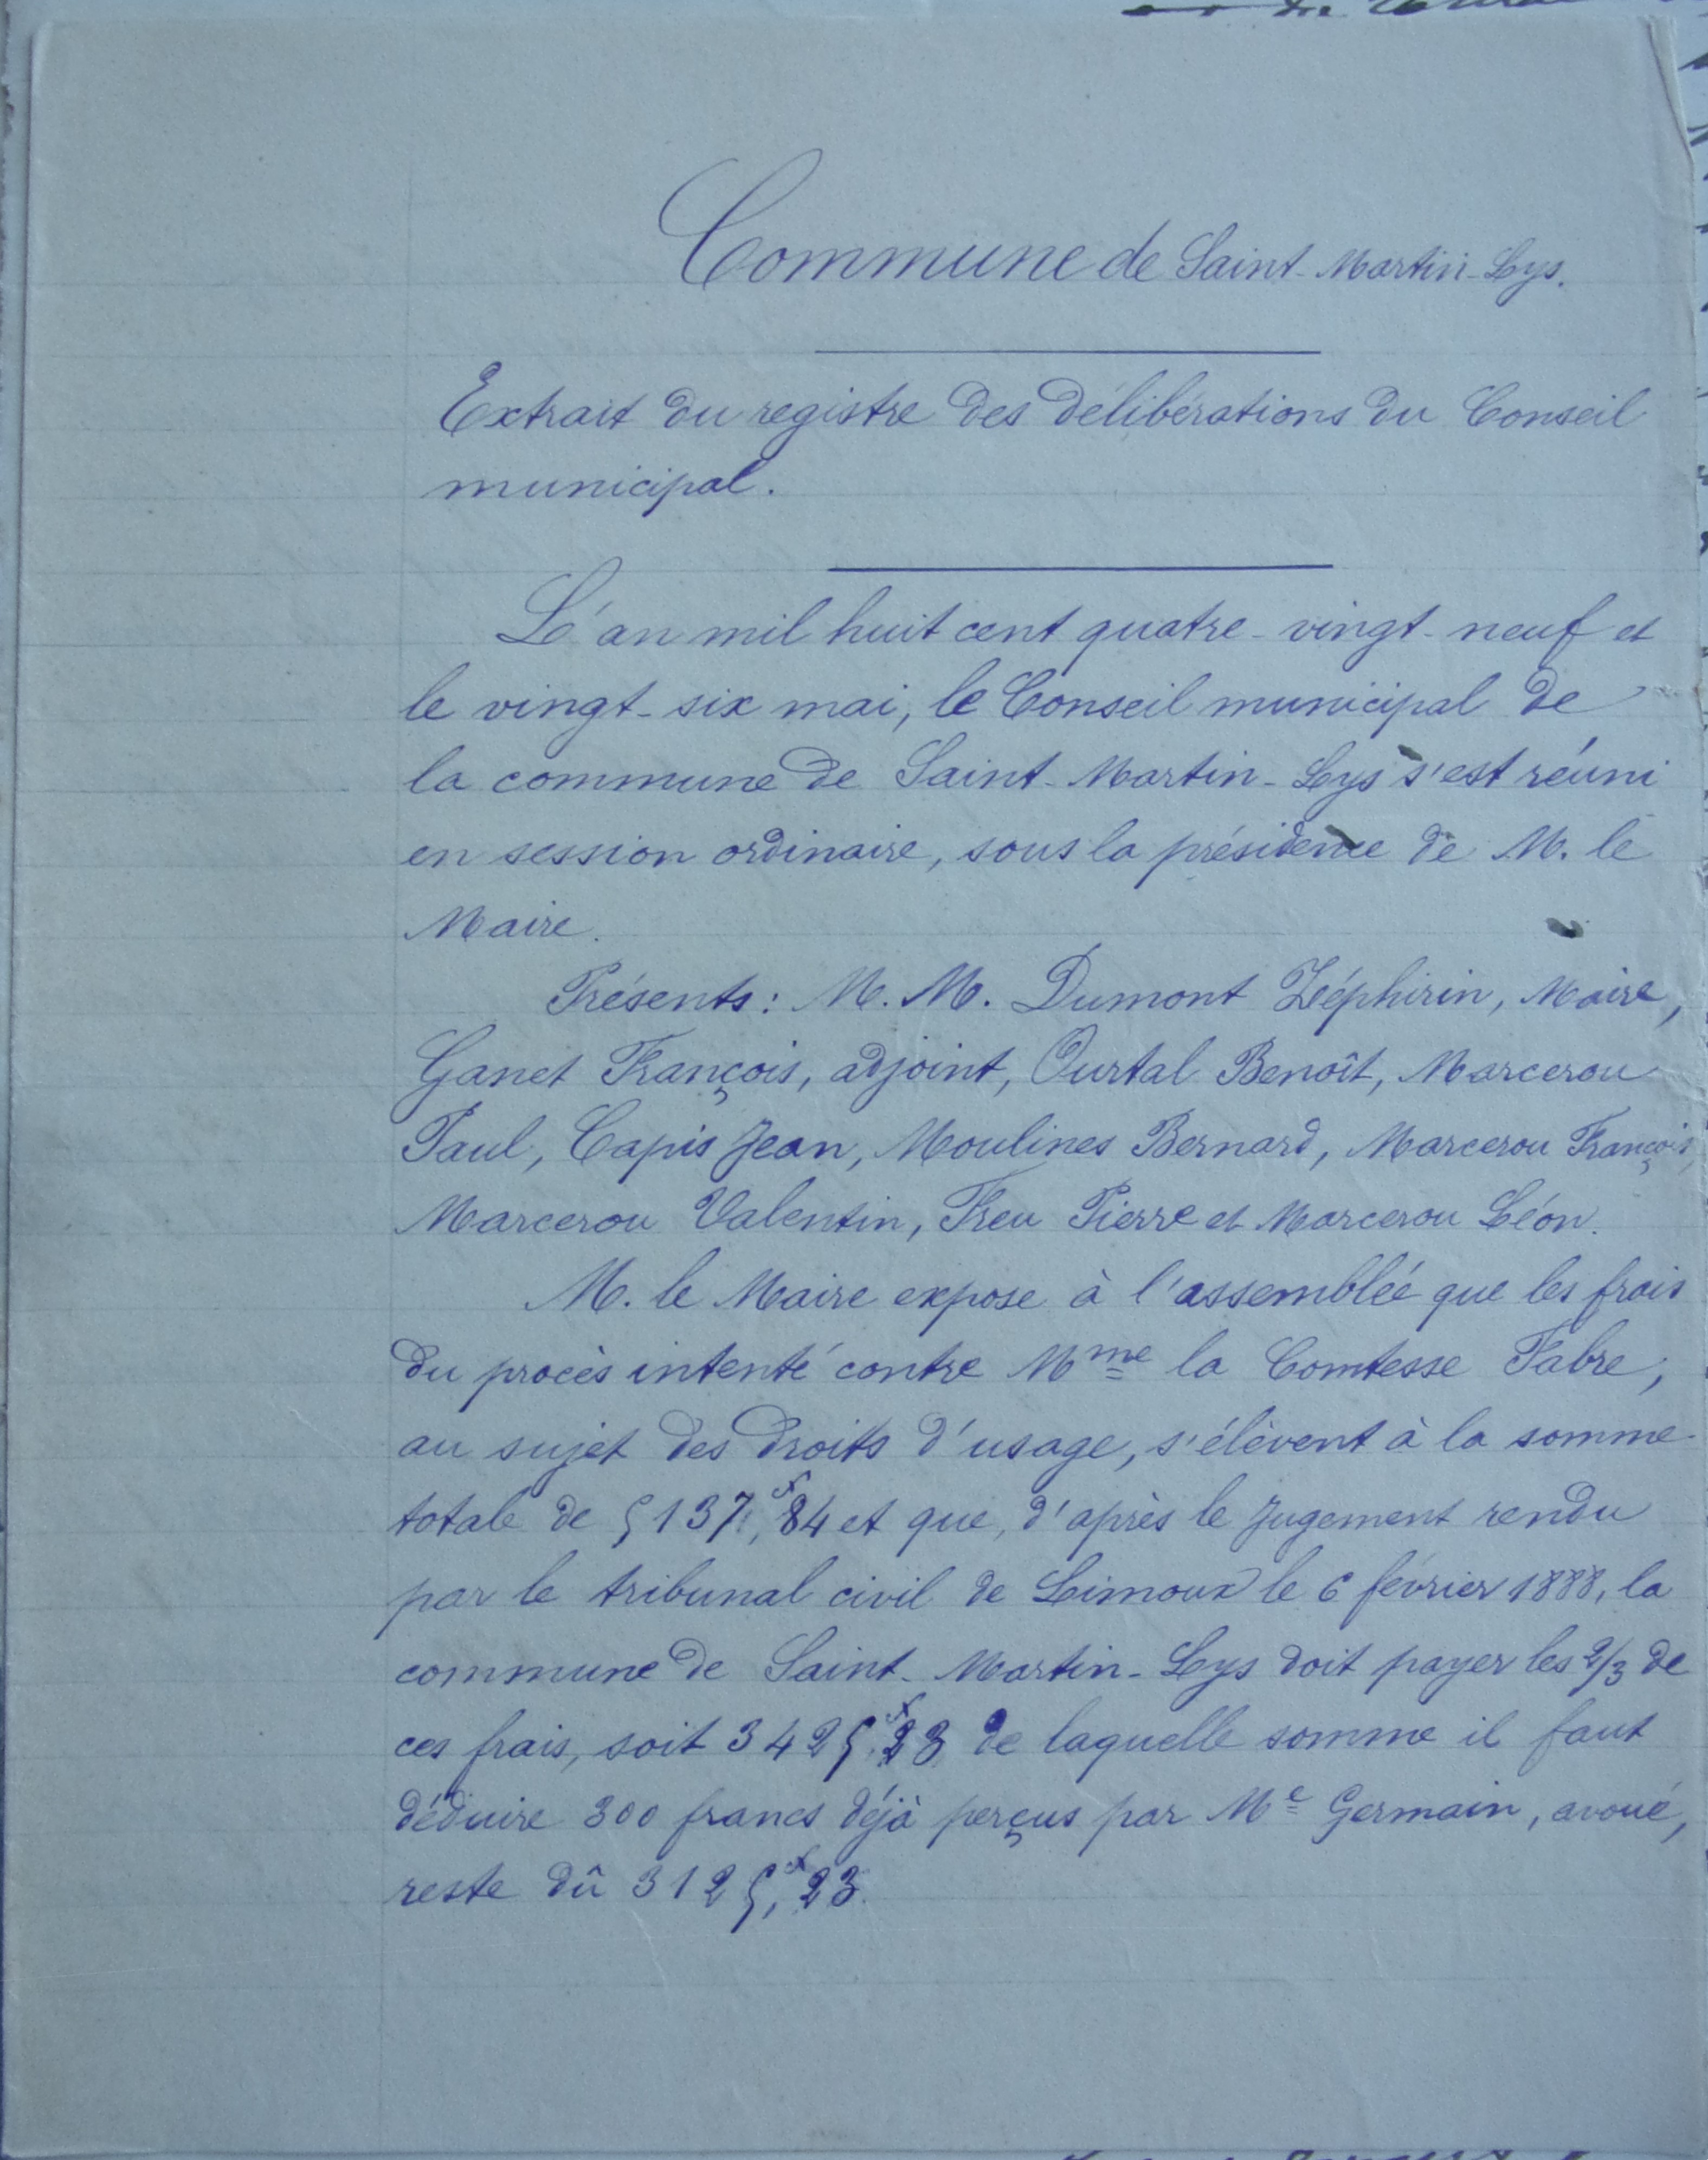 Commune de Saint-Martin-Lys.
Extrait du registre des délibérations du Conseil
municipal.
L'an mil huit cent quatre-vingt-neuf et
le vingt-six mai, le Conseil municipal de
la commune de Saint-Martin-Lys s'est réuni
en session ordinaire, sous la présidence de M. le
Maire.
Présents : M. M. Dumont Zéphirin, Maire,
Ganet François, adjoint, Ourtal Benoît, Marcerou
Paul, Capis Jean, Moulines Bernard, Marcerou François,
Marcerou Valentin, Freu Pierre et Marcerou Léon.
M. le Maire expose à l'assemblée que les frais
du procès intenté contre Mme la Comtesse Fabre,
au sujet des droits d'usage, s'élèvent à la somme
totale de 5137f,84 et que, d'après le jugement rendu
par le tribunal civil de Limoux le 6 février 1888, la
commune de Saint-Martin-Lys doit payer les 2/3 de
ces frais, soit 3425f,23 de laquelle somme il faut
déduire 300 francs déjà perçus par Me Germain, avoué,
reste dû 3125f,23.